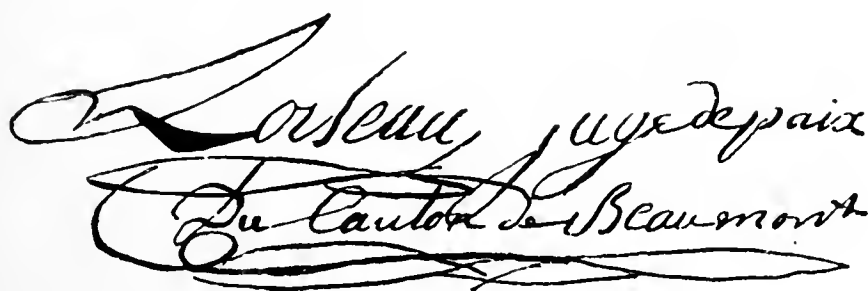 Loiseau juge de paix
Du Canton de Beaumont